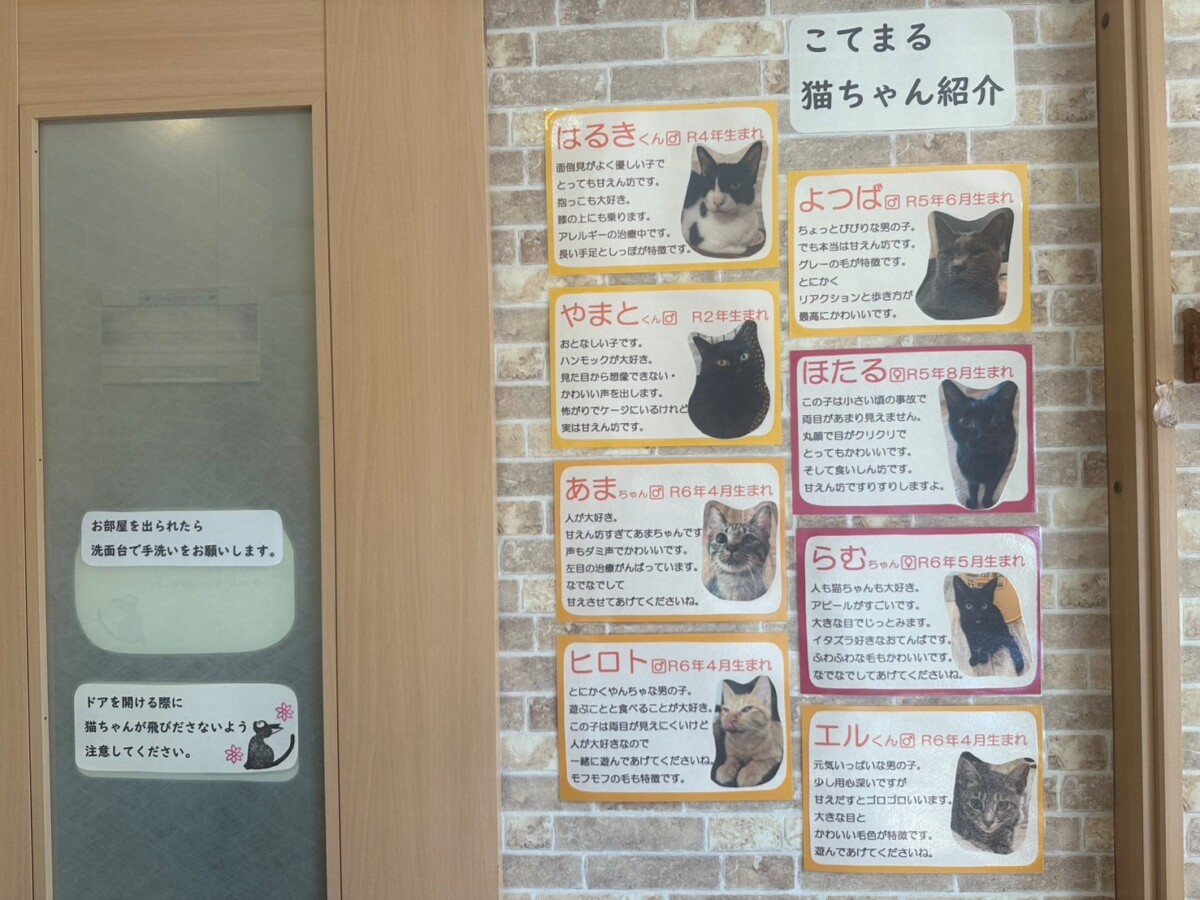 こてまる
猫ちゃん紹介
はるきくん♂ R4年生まれ
面倒見がよく優しい子で
とっても甘えん坊です。
抱っこも大好き。
膝の上にも乗ります。
アレルギーの治療中です。
長い手足としっぽが特徴です。
やまとくん♂ R2年生まれ
おとなしい子です。
ハンモックが大好き。
見た目から想像できない・
かわいい声を出します。
怖がりでケージにいるけれど
実は甘えん坊です。
あまちゃん♂ R6年4月生まれ
人が大好き。
甘えん坊すぎてあまちゃんです
声もダミ声でかわいいです。
左目の治療がんばっています。
なでなでして
甘えさせてあげてくださいね。
ヒロト♂R6年4月生まれ
とにかくやんちゃな男の子。
遊ぶことと食べることが大好き。
この子は両目が見えにくいけど
人が大好きなので
一緒に遊んであげてくださいね。
モフモフの毛も特徴です。
よつば♂ R5年6月生まれ
ちょっとびびりな男の子。
でも本当は甘えん坊です。
グレーの毛が特徴です。
とにかく
リアクションと歩き方が
最高にかわいいです。
ほたる♀R5年8月生まれ
この子は小さい頃の事故で
両目があまり見えません。
丸顔で目がクリクリで
とってもかわいいです。
そして食いしん坊です。
甘えん坊ですりすりしますよ。
らむちゃん♀R6年5月生まれ
人も猫ちゃんも大好き。
アピールがすごいです。
大きな目でじっとみます。
イタズラ好きなおてんばです。
ふわふわな毛もかわいいです。
なでなでしてあげてくださいね。
エルくん♂ R6年4月生まれ
元気いっぱいな男の子。
少し用心深いですが
甘えだすとゴロゴロいいます。
大きな目と
かわいい毛色が特徴です。
遊んであげてくださいね。
お部屋を出られたら
洗面台で手洗いをお願いします。
ドアを開ける際に
猫ちゃんが飛びださないよう
注意してください。